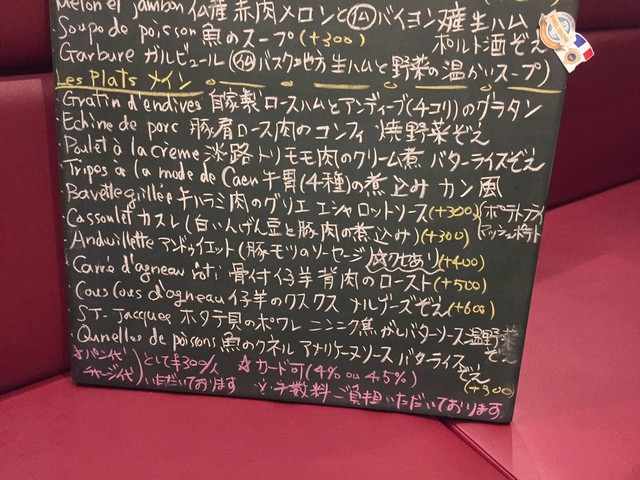 Melon et jambon 仏産赤肉メロンと仏バイヨンヌ産生ハム
ポルト酒ぞえ
・Soupe de poisson 魚のスープ (+300)
・Garbure ガルビュール (仏バスク地方 生ハムと野菜の温かいスープ)
Les Plats メイン
・Gratin d'endives 自家製ロースハムとアンディーブ(チコリ)のグラタン
・Echine de porc 豚肩ロース肉のコンフィ 焼野菜ぞえ
・Poulet à la crème 淡路トリモモ肉のクリーム煮 バターライスぞえ
・Tripes à la mode de Caen 牛胃(4種)の煮込み カン風
・Bavette grillée 牛ハラミ肉のグリエ エシャロットソース(+300)(ポテトフライ
マッシュポテト
・Cassoulet カスレ (白いんげん豆と豚肉の煮込み)(+300)
・Andouillette アンドゥイエット(豚モツのソーセージ) ☆クセあり (+400)
・Carré d'agneau rôti 骨付仔羊背肉のロースト(+500)
・Couscous d'agneau 仔羊のクスクス メルゲーズぞえ(+600)
・ST-Jacques ホタテ貝のポワレ ニンニク焦がしバターソース 温野菜
ぞえ
・Qunelles de poissons 魚のクネル アメリケーヌソース バターライス
ぞえ
(+300)
☆パン代
チャージ代
として¥300/人
いただいております
☆カード可(4% ou 4.5%)
※手数料ご負担いただいております